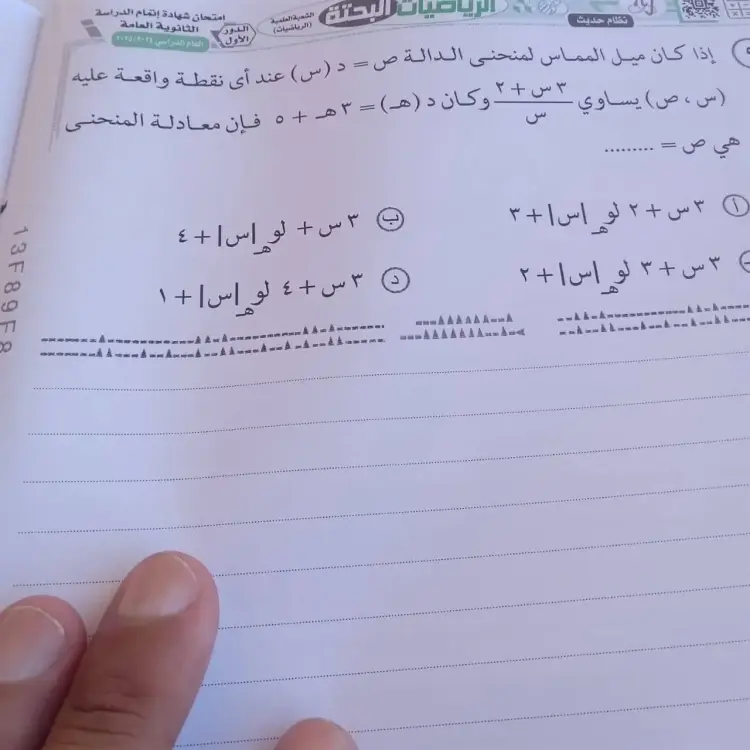 امتحان شهادة إتمام الدراسة
الثانوية العامة
العام الدراسي ٢٠٢٤/٢٠٢٥
الدور
الأول
الشعبة العلمية
(الرياضيات)
الرياضيات البحتة
نظام حديث
إذا كان ميل المماس لمنحنى الدالة ص = د (س) عند أى نقطة واقعة عليه
(س ، ص) يساوي ٣ س + ٢ / س وكان د (هـ) = ٣ هـ + ٥ فإن معادلة المنحنى
هي ص = .........
أ ٣ س + ٢ لو هـ |س| + ٣
ب ٣ س + لو هـ |س| + ٤
٣ س + ٣ لو هـ |س| + ٢
د ٣ س + ٤ لو هـ |س| + ١
13F89F8